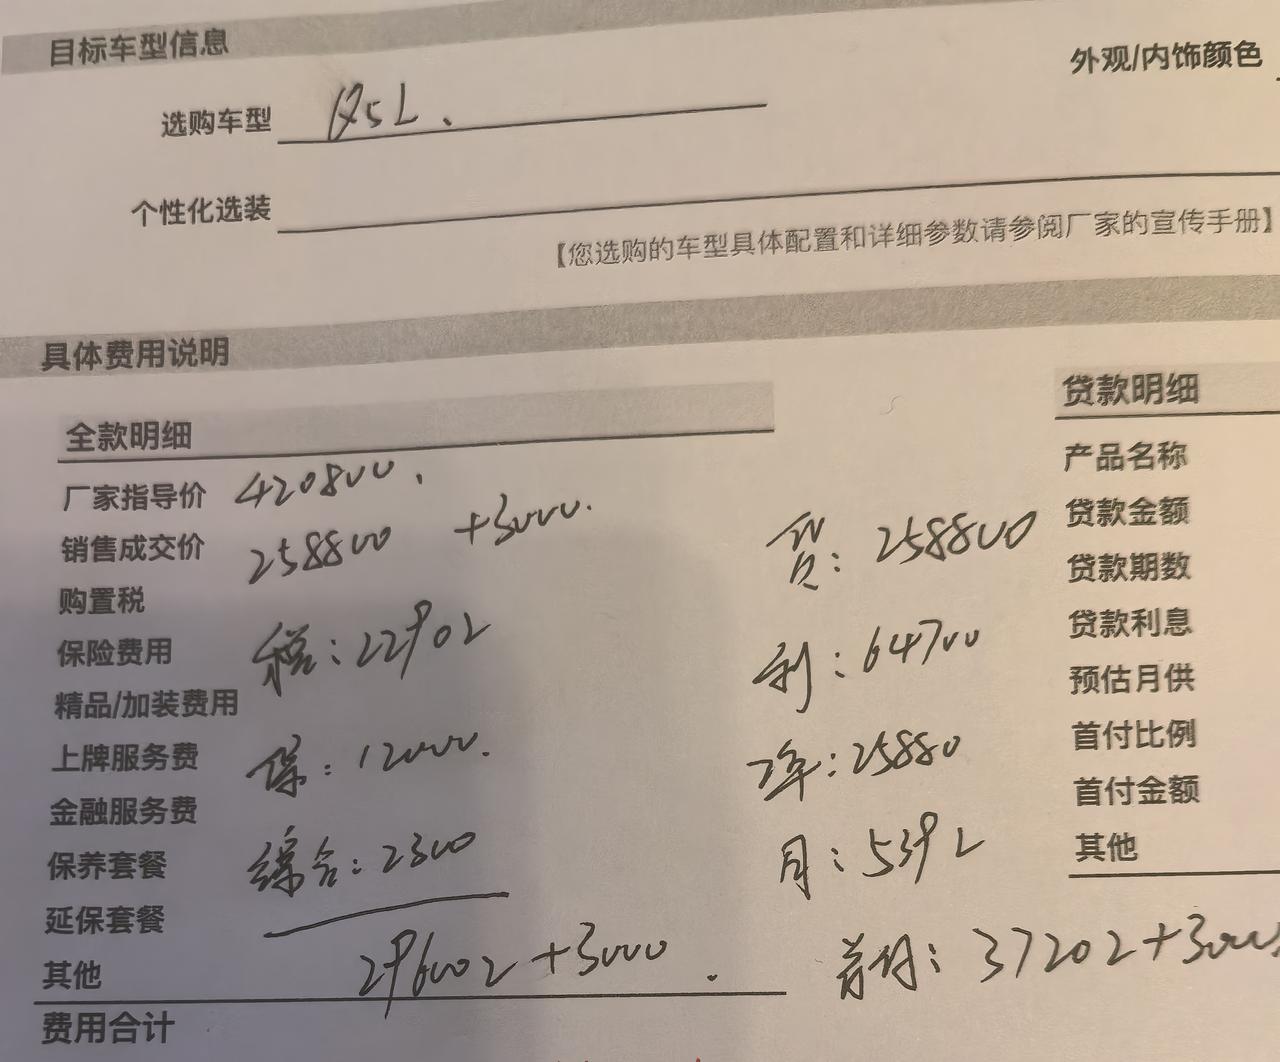 目标车型信息
外观/内饰颜色
选购车型 Q5L.
个性化选装
【您选购的车型具体配置和详细参数请参阅厂家的宣传手册】
具体费用说明
全款明细
厂家指导价 420800.
销售成交价 258800 +3000.
购置税
保险费用 税:22902
精品/加装费用
上牌服务费 保:12000.
金融服务费
保养套餐 综合:2300
延保套餐
其他 296002+3000.
费用合计
贷:258800
利:64700
:25880
月:5392
首付:37202+3000
贷款明细
产品名称
贷款金额
贷款期数
贷款利息
预估月供
首付比例
首付金额
其他